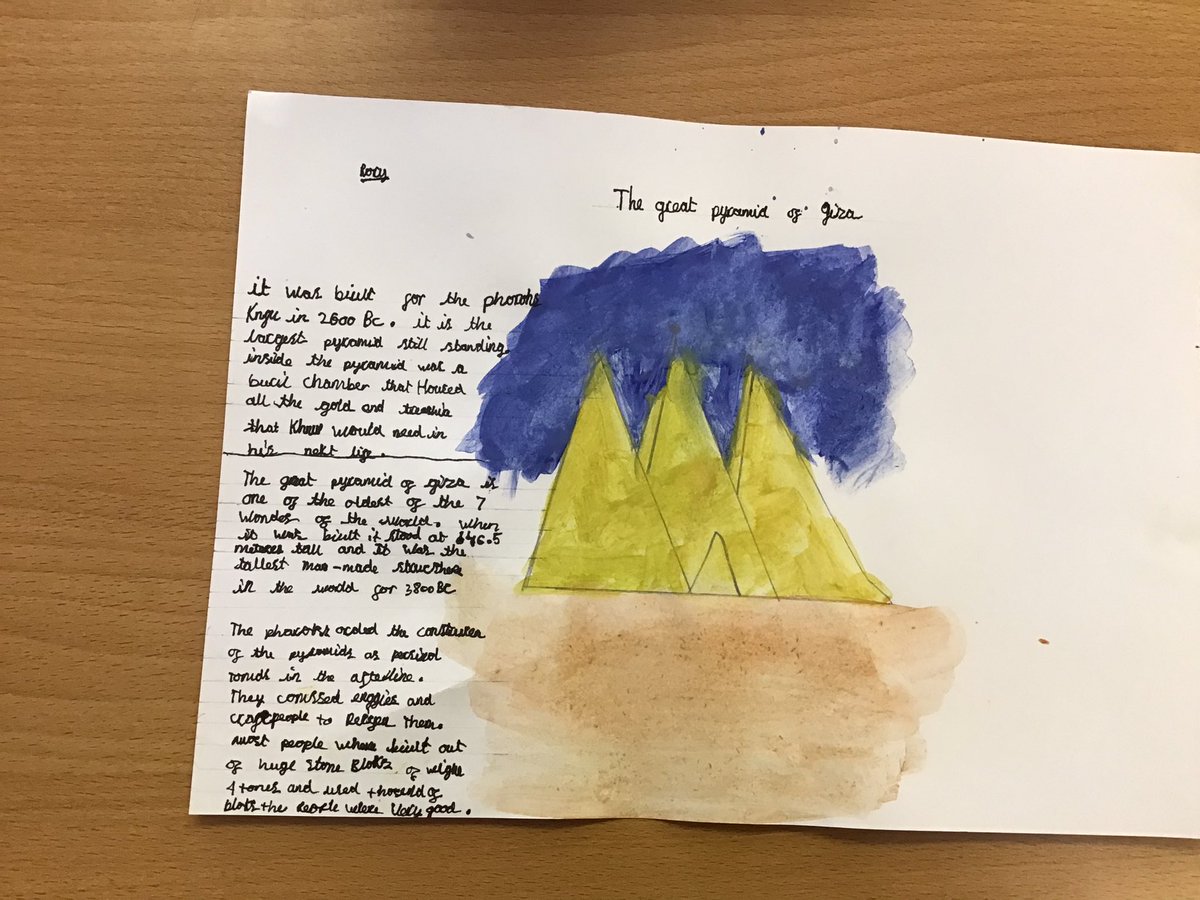 Rory
The great pyramid of giza
it was biult for the pharohs
Knfu in 2600 Bc. it is the
largest pyramid still standing.
inside the pyramid was a
buril chamber that Housed
all the gold and
that Khufu would need in
his next life.
The great pyramid of giza is
one of the oldest of the 7
wondes of the world. when
it was biult it stood at 146.5
metres tall and it was the
tallest man-made
in the world for 3800 BC
The orded the
of the pyramids as
tombs in the afterlike.
They and
craftpeople to them.
most people where biult out
of huge stone Bloks of
4 tones and used of
bloks the people where very good.